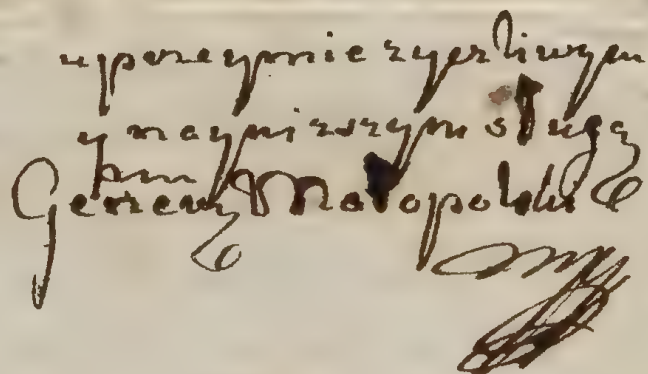 uprzeymie zyczliwym
y naynizszym sługą
Generał Małopolski